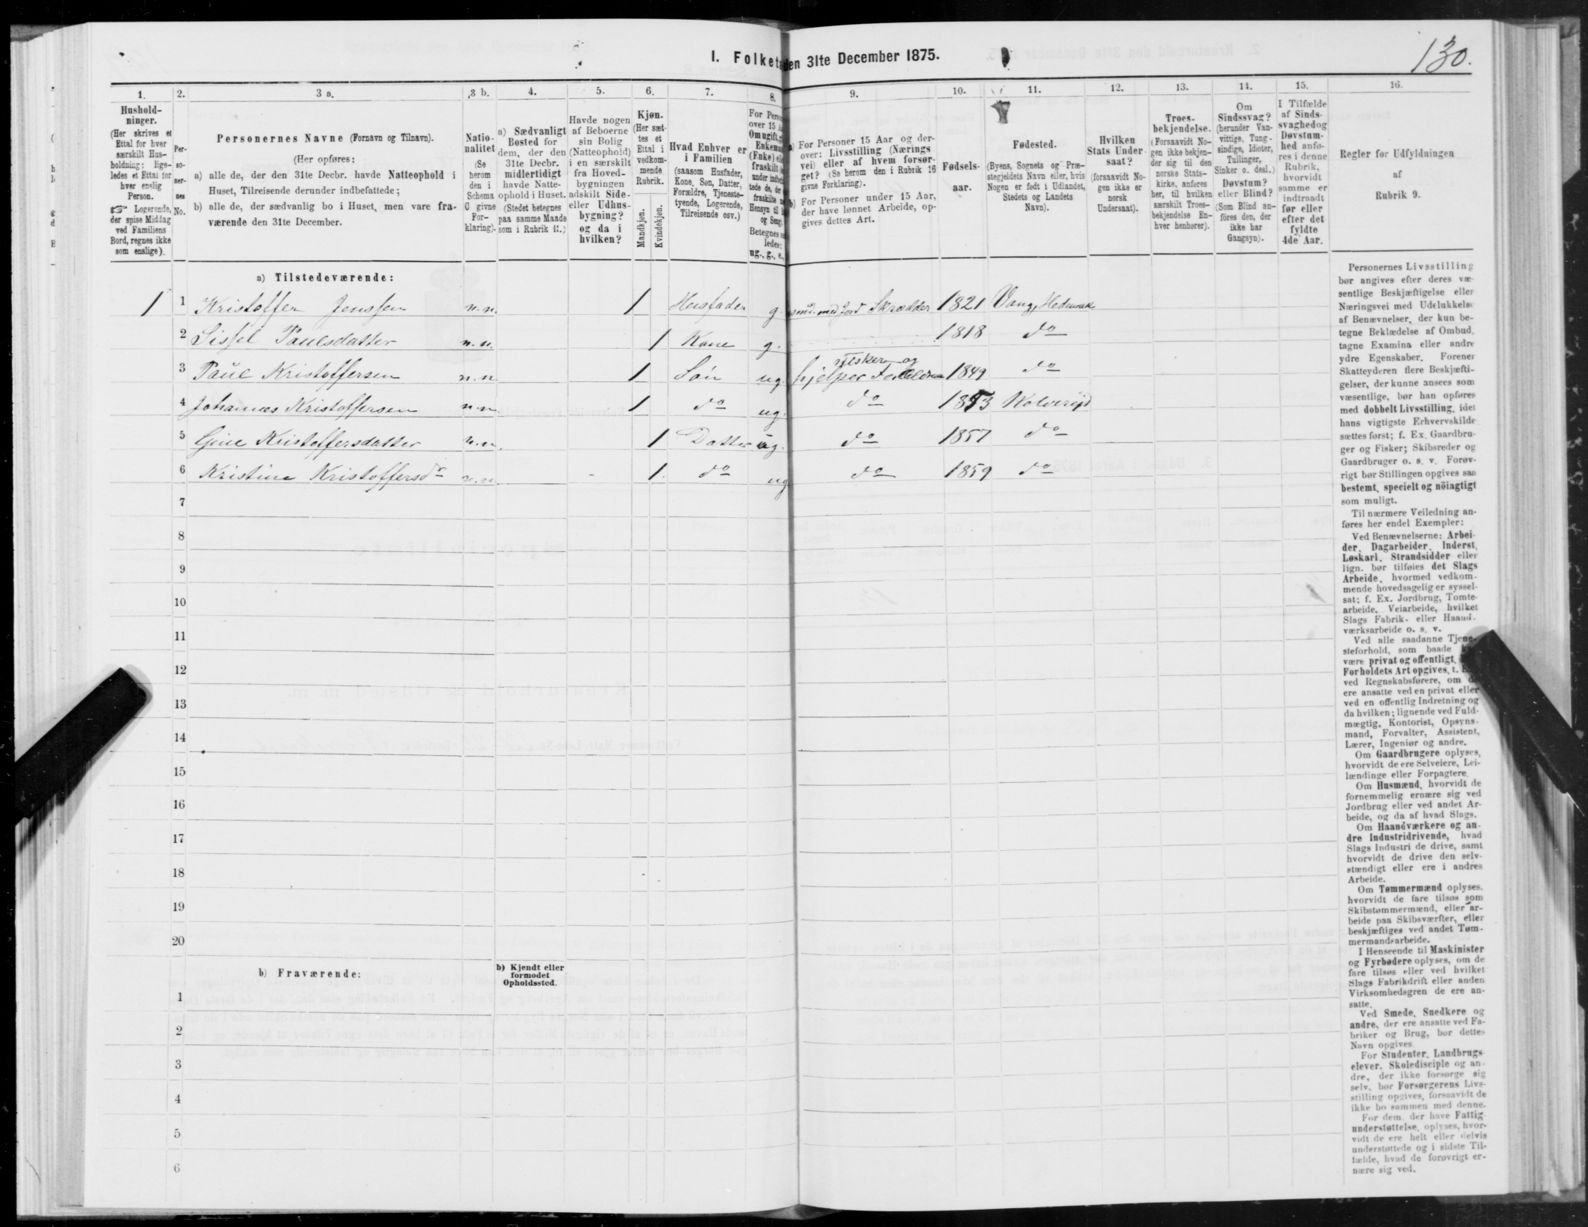 I. Folketæ en 31te December 1875.
130.
1. 2. 3 a. 3 b. 4. 5. 6. 7. 8. 9. 10. 11. 12. 13. 14. 15. 16.
Hushold-
ninger.
(Her skrives et
Ettal for hver
særskilt Hus-
holdning; lige-
ledes et Ettal for
hver enslig
Person.
☞ Logerende,
der spise Middag
ved Familiens
Bord, regnes ikke
som enslige).
Per-
so-
ner-
nes
No.
Personernes Navne (Fornavn og Tilnavn).
(Her opføres:
a) alle de, der den 31te Decbr. havde Natteophold i
Huset, Tilreisende derunder indbefattede;
b) alle de, der sædvanlig bo i Huset, men vare fra-
værende den 31te December.
Natio-
nalitet
(Se
herom
den i
Schema
O givne
For-
klaring).
a) Sædvanligt
Bosted for
dem, der den
31te Decbr.
midlertidigt
havde Natte-
ophold i Huset.
(Stedet betegnes
paa samme Maade
som i Rubrik 11.)
Havde nogen
af Beboerne
sin Bolig
(Natteophold)
i en særskilt
fra Hoved-
bygningen
adskilt Side-
eller Udhus-
bygning?
og da i
hvilken?
Kjøn.
(Her sæt-
tes et
Ettal i
vedkom-
mende
Rubrik.
Mandkjøn.
Kvindekjøn.
Hvad Enhver er
i Familien
(saasom Husfader,
Kone, Søn, Datter,
Forældre, Tjeneste-
tyende, Logerende,
Tilreisende osv.)
For Perso
over 15 A
Om ugift,
Enkemand
(Enke) el
fraskilt
og Seng
Betegnes
ledes:
ug., g., e.,
a) For Personer 15 Aar og der-
over: Livsstilling (Nærings
vei) eller af hvem forsør-
get? (Se herom den i Rubrik 16
givne Forklaring).
b) For Personer under 15 Aar,
der have lønnet Arbeide, op-
gives dettes Art.
Fødsels-
aar.
Fødested.
(Byens, Sognets og Præ-
stegjeldets Navn eller, hvis
Nogen er født i Udlandet,
Stedets og Landets
Navn).
Hvilken
Stats Under-
saat?
(forsaavidt No-
gen ikke er
norsk
Undersaat).
Troes-
bekjendelse.
(Forsaavidt No-
gen ikke bekjen-
der sig til den
norske Stats-
kirke, anføres
her, til hvilken
særskilt Troes-
bekjendelse En-
hver henhører).
Om
Sindssvag?
(herunder Van-
vittige, Tung-
sindige, Idioter,
Tullinger,
Sinker o. desl.)
Døvstum?
eller Blind?
Som Blind an-
føres den, der
ikke har
Gangsyn).
I Tilfælde
af Sinds-
svaghed og
Døvstum-
hed anfø-
res i denne
Rubrik,
hvorvidt
samme er
indtraadt
før eller
efter det
fyldte
4de Aar.
Regler for Udfyldningen
af
Rubrik 9.
a) Tilstedeværende:
1 1 Kristoffer Jenssen n.n. 1 Husfader g. med jord Skrædder 1821 Vang, Hedemark
2 Sissel Paulsdatter n.n. 1 Kone g. 1818 do
3 Paul Kristoffersen n.n 1 Søn ug. fisker og hjelper Forældrene 1849 do
4 Johannes Kristoffersen n.n. 1 do ug. do 1853 Kolvereid
5 Kristoffersdatter n.n. 1 Datter ug. do 1857 do
6 Kristine Kristoffersdr n.n. 1 do ug do 1859 do
7
8
9
10
11
12
13
14
15
16
17
18
19
20
b) Fraværende:
b) Kjendt eller
formodet
Opholdssted.
1
2
3
4
5
6
Personernes Livsstilling
bør angives efter deres væ-
sentlige Beskjæftigelse eller
Næringsvei med Udelukkelse
af Benævnelser, der kun be-
tegne Beklædelse af Ombud,
tagne Examina eller andre
ydre Egenskaber. Forener
Skatteyderen flere Beskjæfti-
gelser, der kunne ansees som
væsentlige, bør han opføres
med dobbelt Livsstilling, idet
hans vigtigste Erhvervskilde
sættes først; f. Ex. Gaardbru-
ger og Fisker; Skibsreder og
Gaardbruger o. s. v. Forøv-
rigt bør Stillingen opgives saa
bestemt, specielt og nöiagtigt
som muligt.
Til nærmere Veiledning an-
føres her endel Exempler:
Ved Benævnelserne: Arbei-
der, Dagarbeider, Inderst,
Løskarl, Strandsidder eller
lign. bør tilføies det Slags
Arbeide, hvormed vedkom-
mende hovedsagelig er syssel-
sat; f. Ex. Jordbrug, Tomte-
arbeide, Veiarbeide, hvilket
Slags Fabrik- eller Haand-
værksarbeide o. s. v.
Ved alle saadanne Tjene-
steforhold, som baade
være privat og offentligt,
Forholdets Art opgives, t.
ved Regnskabsførere, om
ere ansatte ved en privat eller
ved en offentlig Indretning og
da hvilken; lignende ved Fuld-
mægtig, Kontorist, Opsyns-
mand, Forvalter, Assistent,
Lærer, Ingeniør og andre.
Om Gaardbrugere oplyses,
hvorvidt de ere Selveiere, Lei-
lændinge eller Forpagtere.
Om Husmænd, hvorvidt de
fornemmelig ernære sig ved
Jordbrug eller ved andet Ar-
beide, og da af hvad Slags.
Om Haandværkere og an-
dre Industridrivende, hvad
Slags Industri de drive, samt
hvorvidt de drive den selv-
stændigt eller ere i andres
Arbeide.
Om Tømmermænd oplyses,
hvorvidt de fare tilsøs som
Skibstømmermænd, eller ar-
beide paa Skibsværfter, eller
beskjæftiges ved andet Tøm-
mermandsarbeide.
I Henseende til Maskinister
og Fyrbødere oplyses, om de
fare tilsøs eller ved hvilket
Slags Fabrikdrift eller anden
Virksomhedsgren de ere an-
satte.
Ved Smede, Snedkere og
andre, der ere ansatte ved Fa-
briker og Brug, bør dettes
Navn opgives.
For Studenter, Landbrugs-
elever, Skoledisciple og an-
dre, der ikke forsørge sig
selv, bør Forsørgerens Livs-
stilling opgives, forsaavidt de
ikke bo sammen med denne.
For dem, der have Fattig-
understøttelse, oplyses, hvor-
vidt de ere helt eller delvis
understøttede og i sidste Til-
fælde, hvad de forøvrigt er-
nære sig ved.